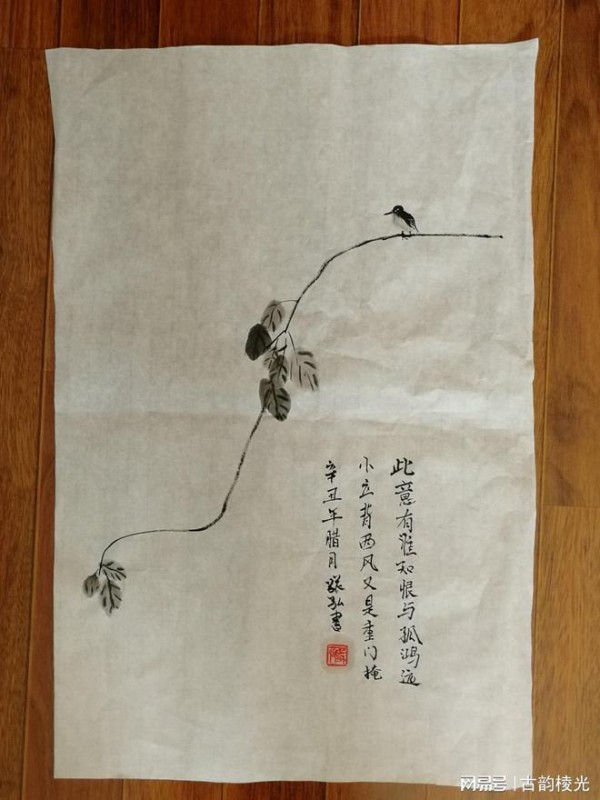 此意有谁知恨与孤鸿远
小立背西风又是重门掩
辛丑年腊月张弘书
网易号|古韵棱光